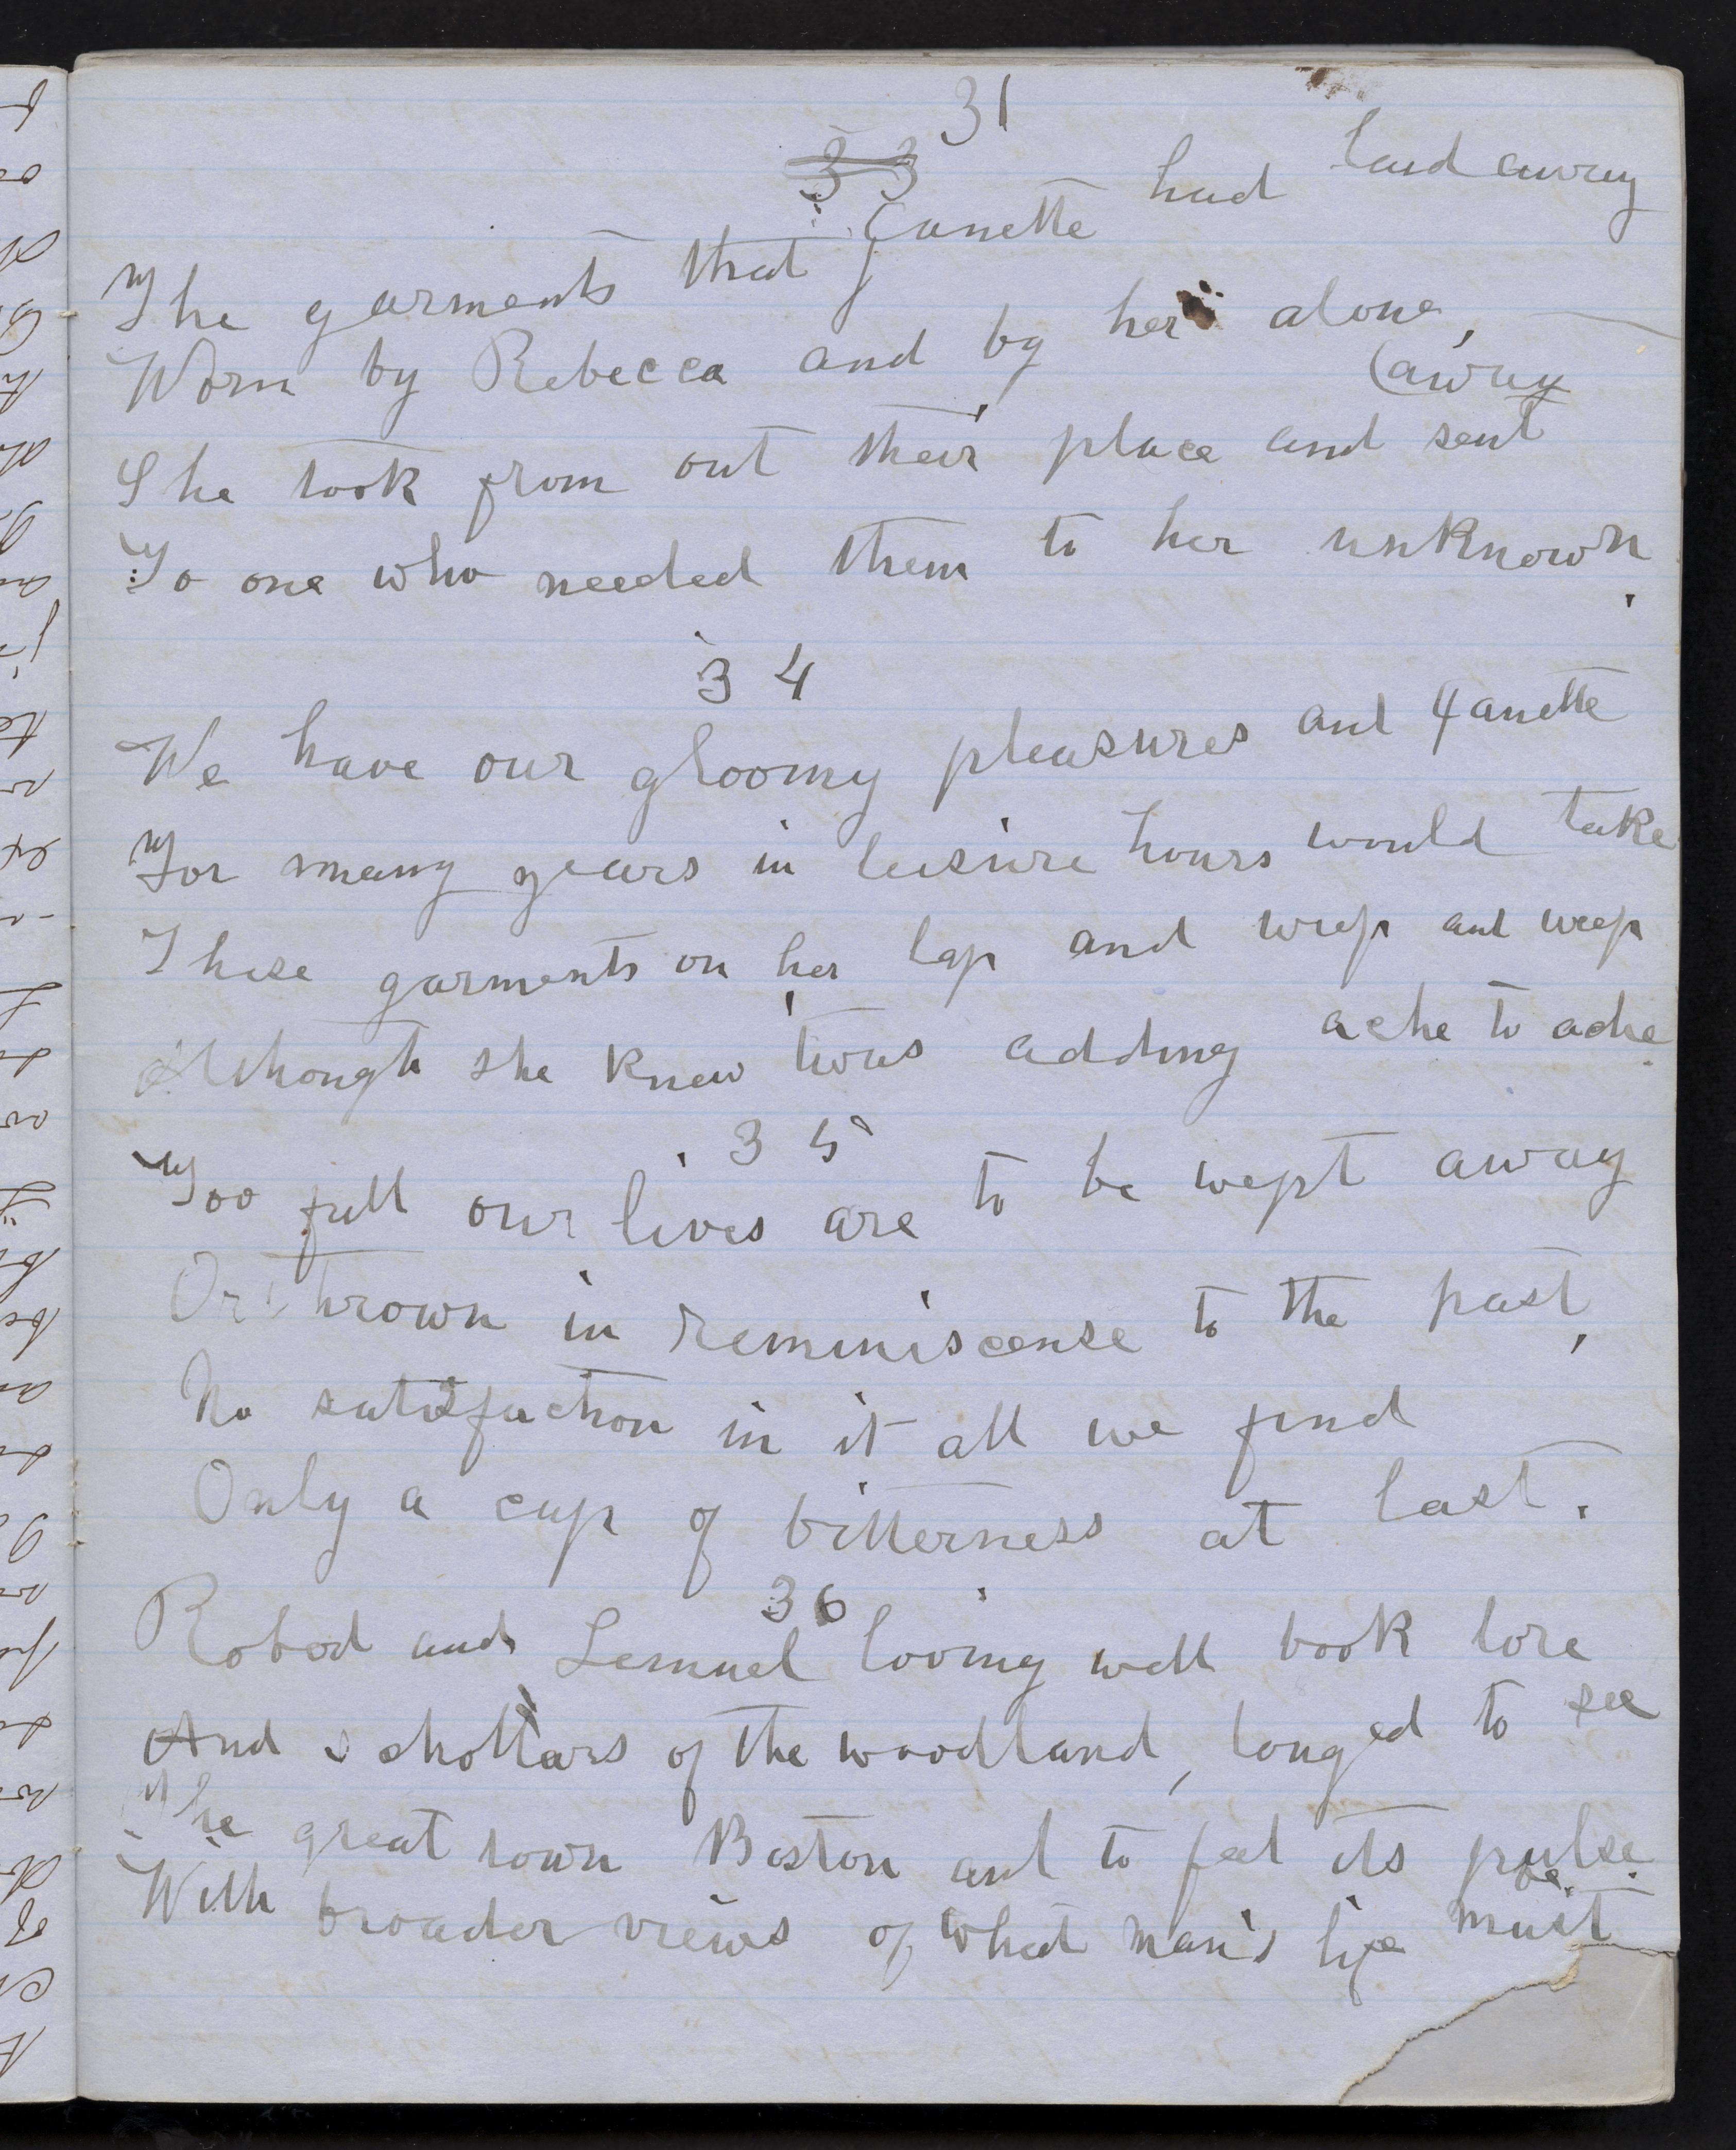 31
33
The garments that Janette had laid away
Worn by Rebecca and by her alone,
(away
She took from out their place and sent
To one who needed them to her unknown.
34
We have our gloomy pleasures and Janette
For many years in leisure hours would take
These garments on her lap and weep and weep
Although she knew 'twas adding ache to ache.
35
Too full our lives are to be wept away
Or thrown in reminiscense to the past,
No satisfaction in it all we find
Only a cup of bitterness at last.
36
Robert and Lemuel loving well book lore
And schollars of the woodland, longed to see
The great town Boston and to feel its pulse.
be.
With broader views of what man's life must